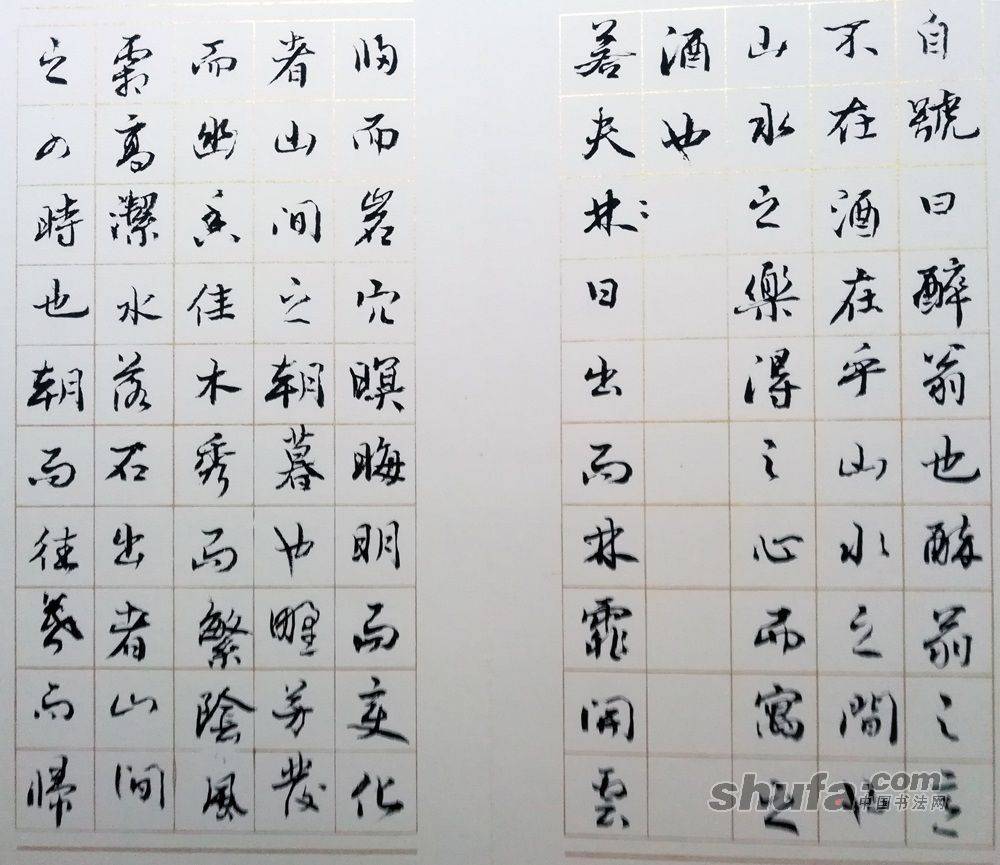 自號曰醉翁也醉翁之意
不在酒在乎山水之間也
山水之樂得之心而寓之
酒也
若夫林日出而林霏開雲
歸而岩穴暝晦明而變化
者山間之朝暮也野芳發
而幽香佳木秀而繁陰風
霜高潔水落石出者山間
之四時也朝而往暮而歸
shufa.com
中国书法网